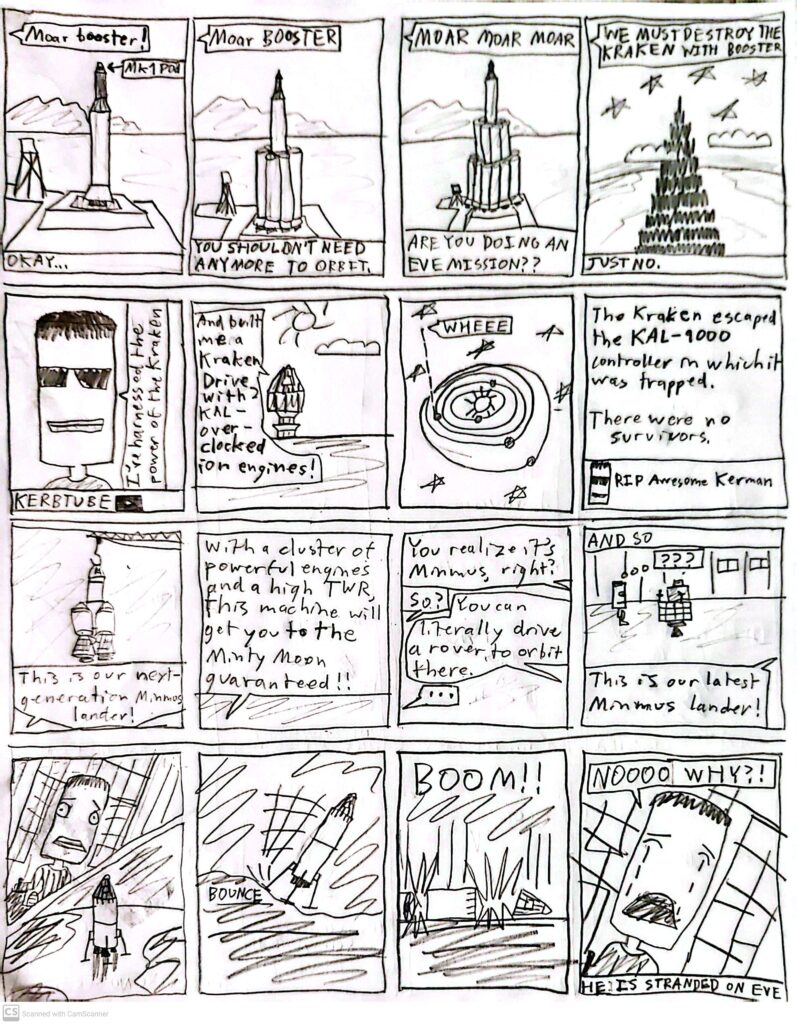 Moar booster!
MK-1 Pod
OKAY...
Moar BOOSTER
YOU SHOULDN'T NEED
ANYMORE TO ORBIT.
MOAR MOAR MOAR
ARE YOU DOING AN
EVE MISSION??
WE MUST DESTROY THE
KRAKEN WITH BOOSTER
JUST NO.
I've harnessed the
power of the Kraken
KERBTUBE
And built
me a
Kraken
Drive
with
KAL-
over-
clocked
ion engines!
WHEEE
The Kraken escaped
the KAL-1000
controller in which it
was trapped.
There were no
survivors.
RIP Awesome Kerman
This is our next-
generation Minmus
lander!
With a cluster of
powerful engines
and a high TWR,
this machine will
get you to the
Minty Moon
guaranteed!!
You realize it's
Minmus, right?
So?
You can
literally drive
a rover to orbit
there.
...
AND SO
???
This is our latest
Minmus lander!
BOUNCE
BOOM!!
NOOOO WHY?!
HE IS STRANDED ON EVE
CS Scanned with CamScanner